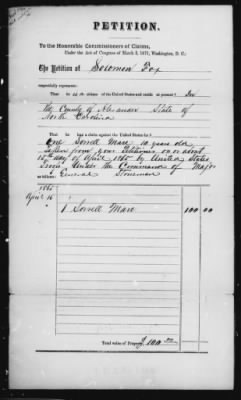 PETITION.
To the Honorable Commissioners of Claims,
Under the Act of Congress of March 3, 1871, Washington, D. C.:
The Petition of Solomon Fox
respectfully represents:
That he is citizen of the United States and resides at present in
the County of Alexander State of
North Carolina
has a claim against the United States for
One Sorrell Mare 10 years old
taken from your Petitioner on or about
15th day of April 1865 by United States
Troops Under the Command of Major
General Stoneman
1865
April 15
1 Sorrell Mare 100 00
Total value of Property, $ 100.00